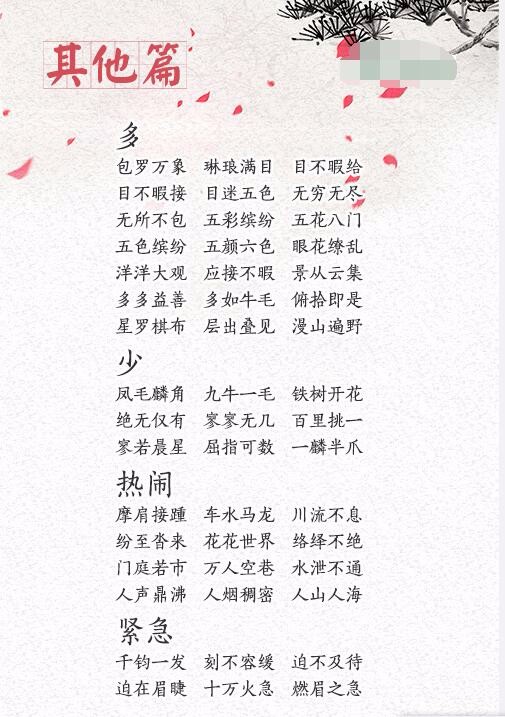 其他篇
多
包罗万象 琳琅满目 目不暇给
目不暇接 目迷五色 无穷无尽
无所不包 五彩缤纷 五花八门
五色缤纷 五颜六色 眼花缭乱
洋洋大观 应接不暇 景从云集
多多益善 多如牛毛 俯拾即是
星罗棋布 层出叠见 漫山遍野
少
凤毛麟角 九牛一毛 铁树开花
绝无仅有 寥寥无几 百里挑一
寥若晨星 屈指可数 一麟半爪
热闹
摩肩接踵 车水马龙 川流不息
纷至沓来 花花世界 络绎不绝
门庭若市 万人空巷 水泄不通
人声鼎沸 人烟稠密 人山人海
紧急
千钧一发 刻不容缓 迫不及待
迫在眉睫 十万火急 燃眉之急